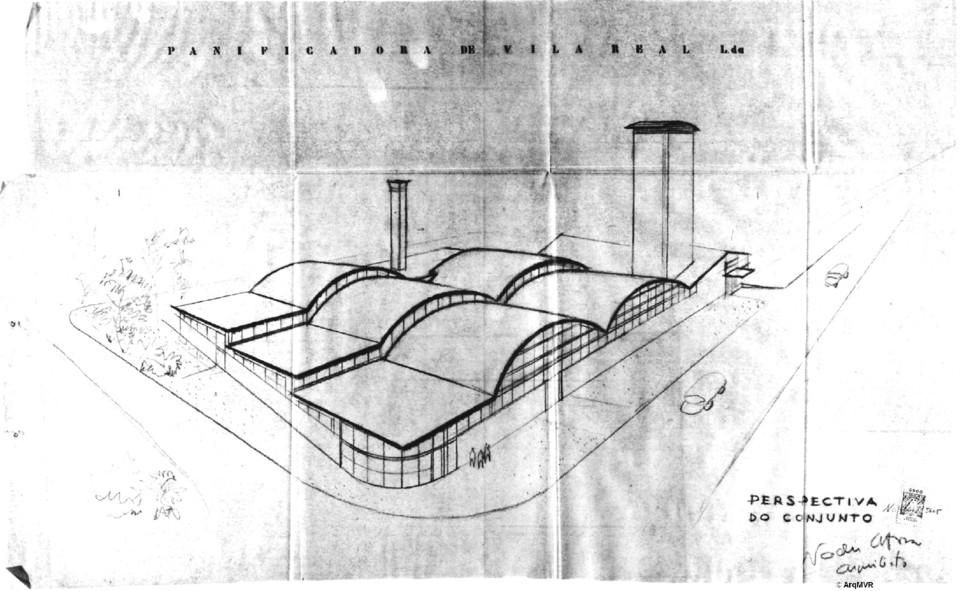 PANIFICADORA DE VILA REAL L.da
PERSPECTIVA
DO CONJUNTO
arquitecto
© ArqMVR